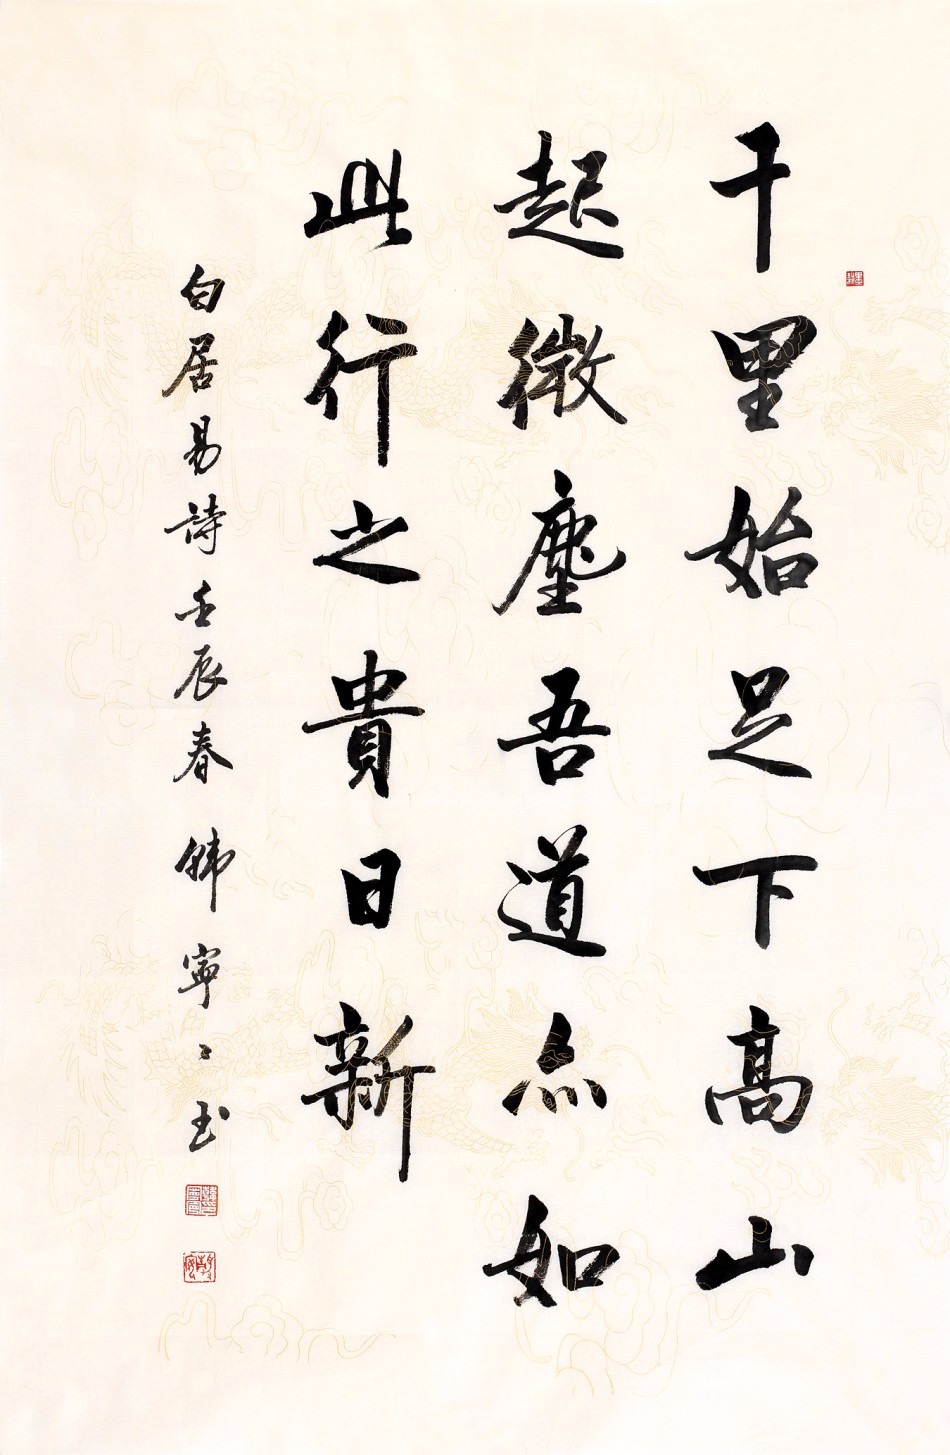 千里始足下高山
起微塵吾道亦如
此行之貴日新
白居易詩壬辰春韩寧〻玉